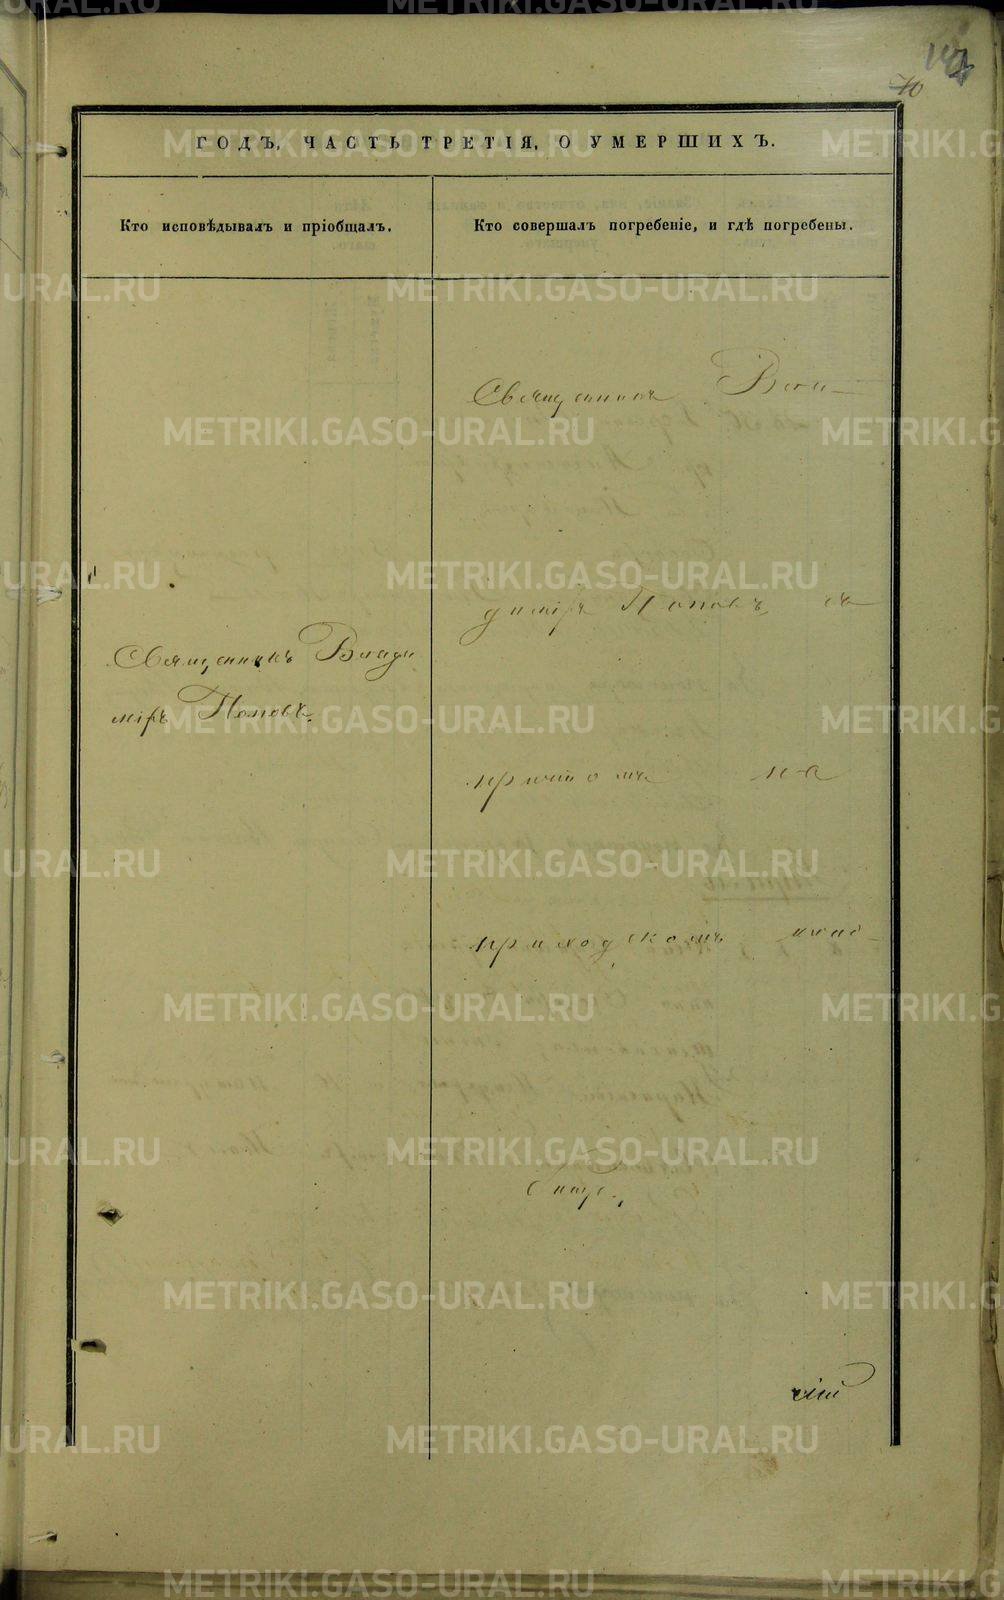 70
ГОДЪ, ЧАСТЬ ТРЕТІЯ, О УМЕРШИХЪ.
Кто исповѣдывалъ и пріобщалъ.
Кто совершалъ погребеніе, и гдѣ погребены.
Священникъ Влади
міръ Поповъ.
Священникъ Вла-
диміръ Поповъ, съ
причтомъ на
приходскомъ клад-
бищѣ.
METRIKI.GASO-URAL.RU